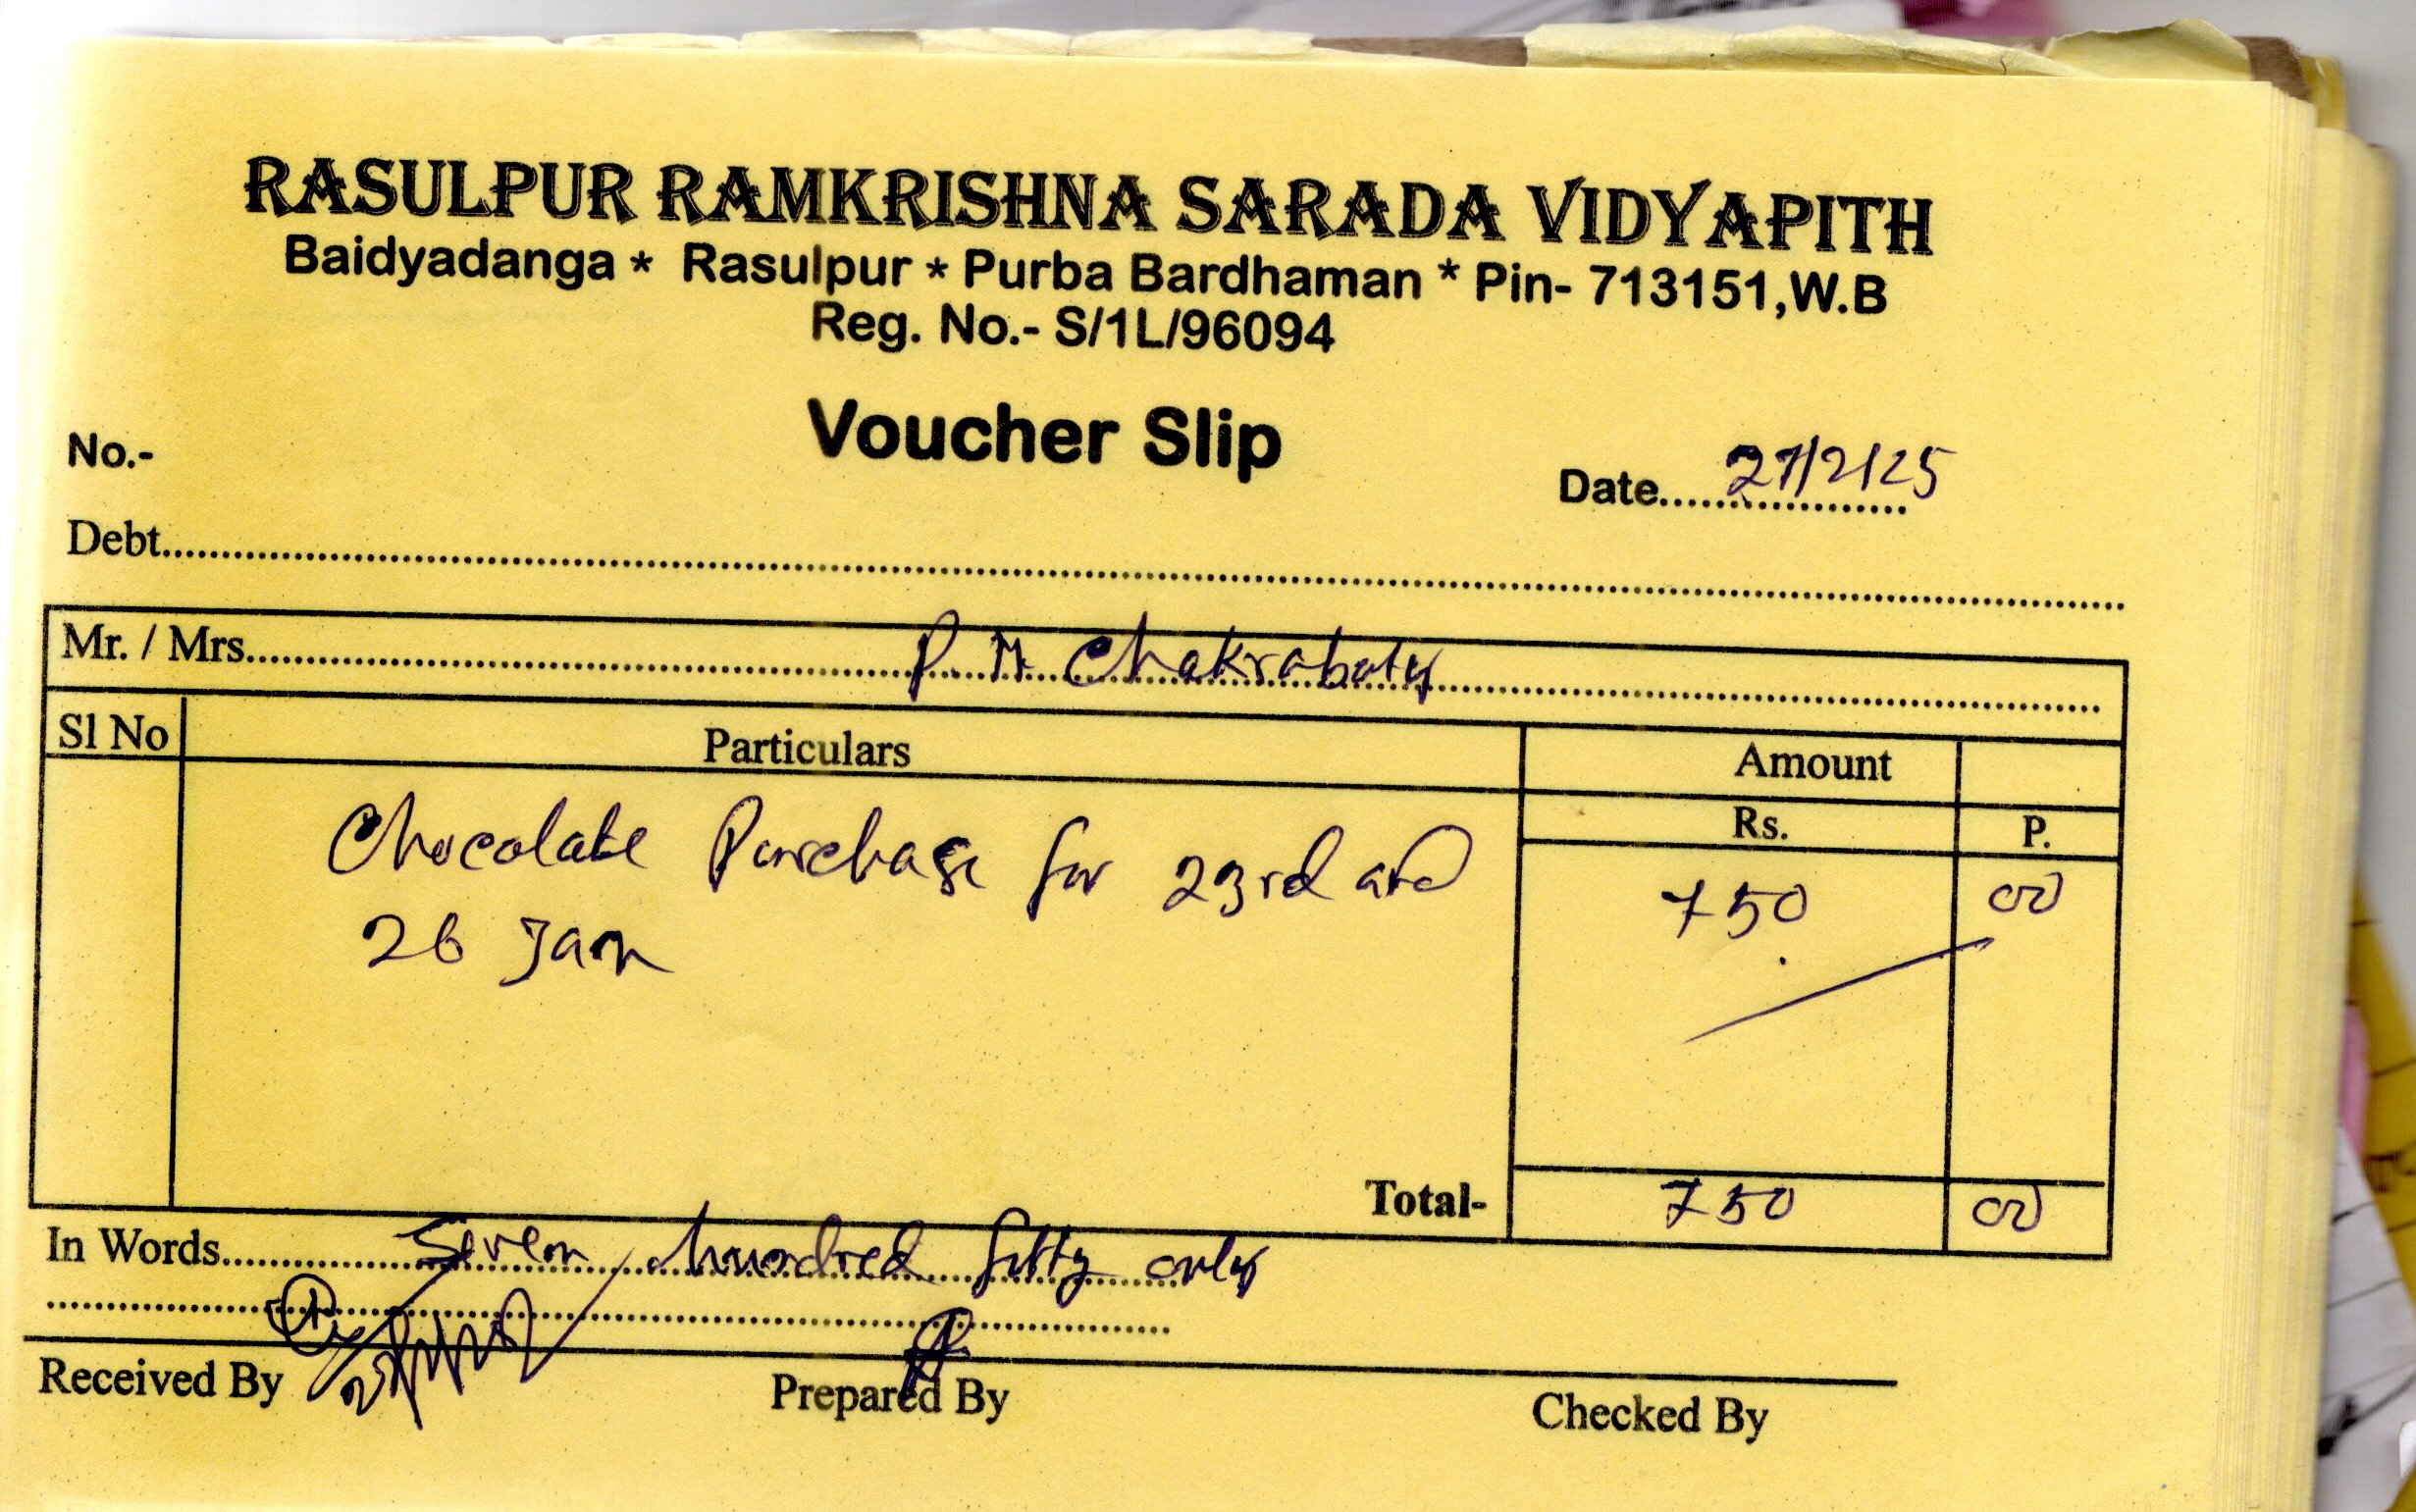 RASULPUR RAMKRISHNA SARADA VIDYAPITH
Baidyadanga * Rasulpur * Purba Bardhaman * Pin- 713151,W.B
Reg. No.- S/1L/96094
Voucher Slip
No.-
Date..... 27/2/25
Debt.....
Mr. / Mrs..... P. M. Chakraboty
Sl No Particulars Amount
Rs. P.
Chocolate Purchase for 23rd and 750 00
26 Jan
Total- 750 00
In Words..... Seven hundred fifty only
Received By Prepared By Checked By